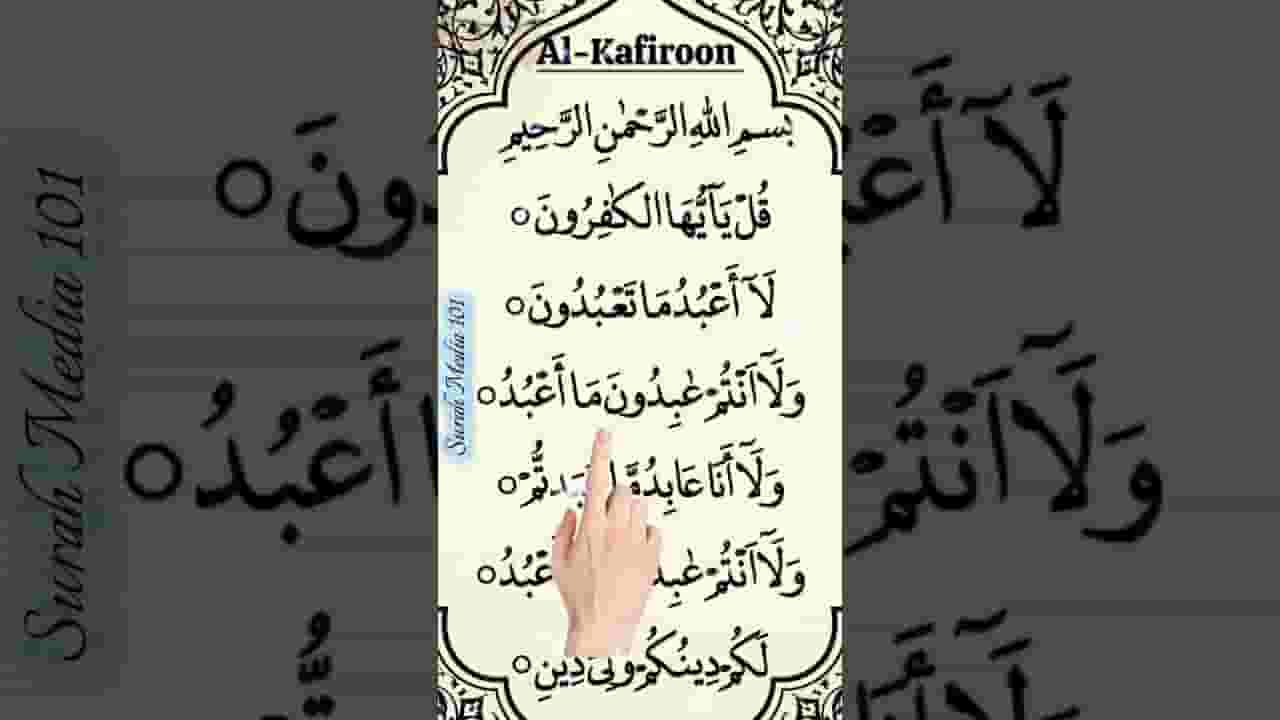 Al-Kafiroon
بسمِ اللهِ الرَّحْمٰنِ الرَّحِيمِ
قُلْ يَآيُّهَا الكٰفِرُونَ ○
لَآ أَعْبُدُ مَا تَعْبُدُونَ ○
وَلَآ اَنْتُمْ عٰبِدُونَ مَا أَعْبُدُ ○
وَلَآ أَنَا عَابِدُ تُّمْ ○
وَلَآ اَنْتُمْ أَعْبُدُ ○
لَكُمْ دِينُكُمْ وَلِيَ دِينِ ○
Surah Media 101
Surah Media 101
لَآ أَعْ دُونَ ○
وَلَآ اَنْتُمْ أَعْبُدُ ○